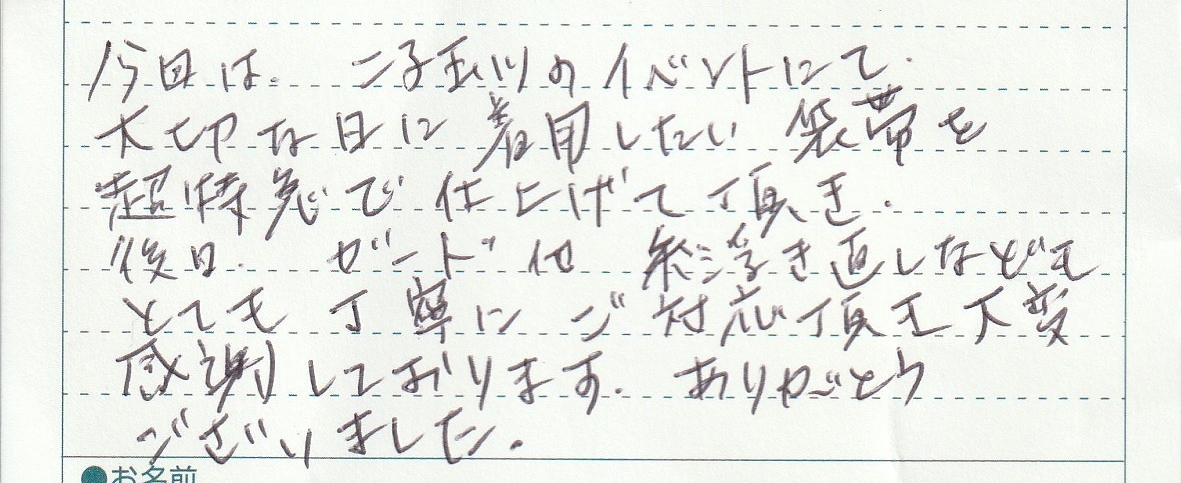 今日は、二子玉川のイベントにて、
大切な日に着用したい袋帯を
超特急で仕上げて頂き、
後日、ガード他 糸浮き直しなども
とても丁寧にご対応頂き大変
感謝しております。ありがとう
ございました。
●お名前